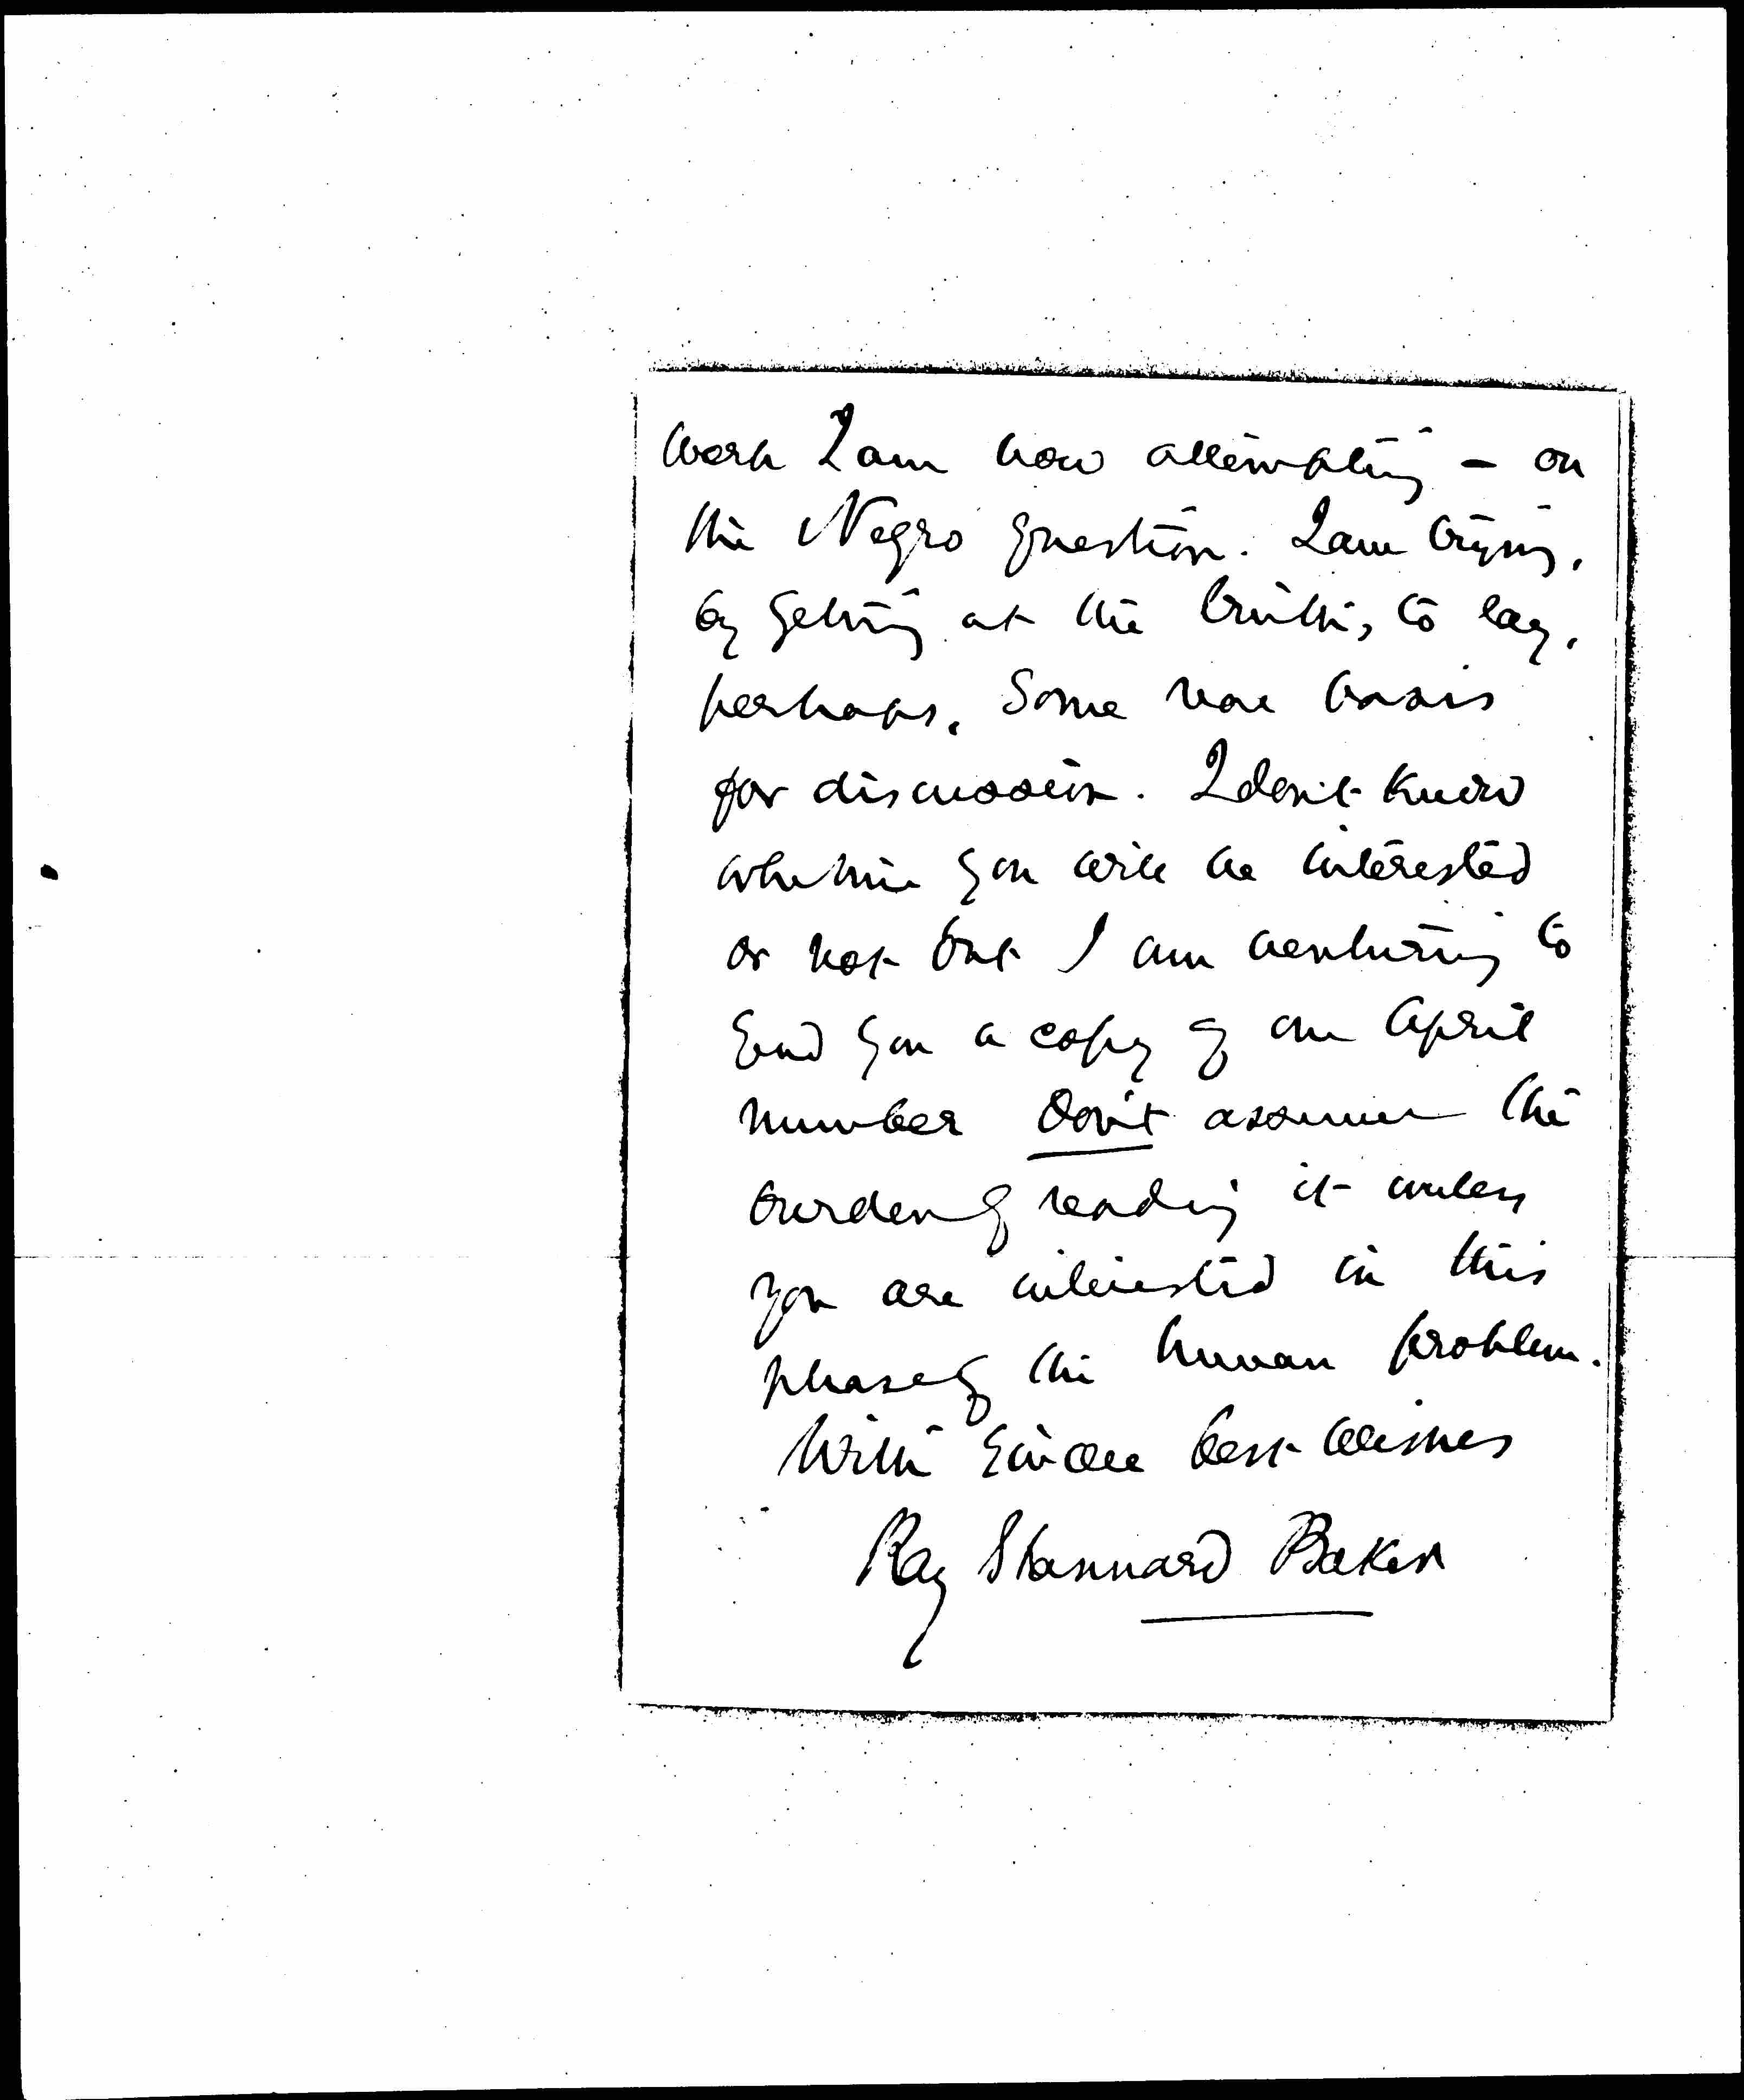 work I am now attempting – on
the Negro question. I am trying,
by getting at the truth, to lay,
perhaps, some basis
for discussion. I don't know
whether you will be interested
or not but I am venturing to
send you a copy of our April
number Don't assume the
burden of reading it unless
you are interested in this
phase of the human problem.
With sincere best wishes
Ray Stannard Baker